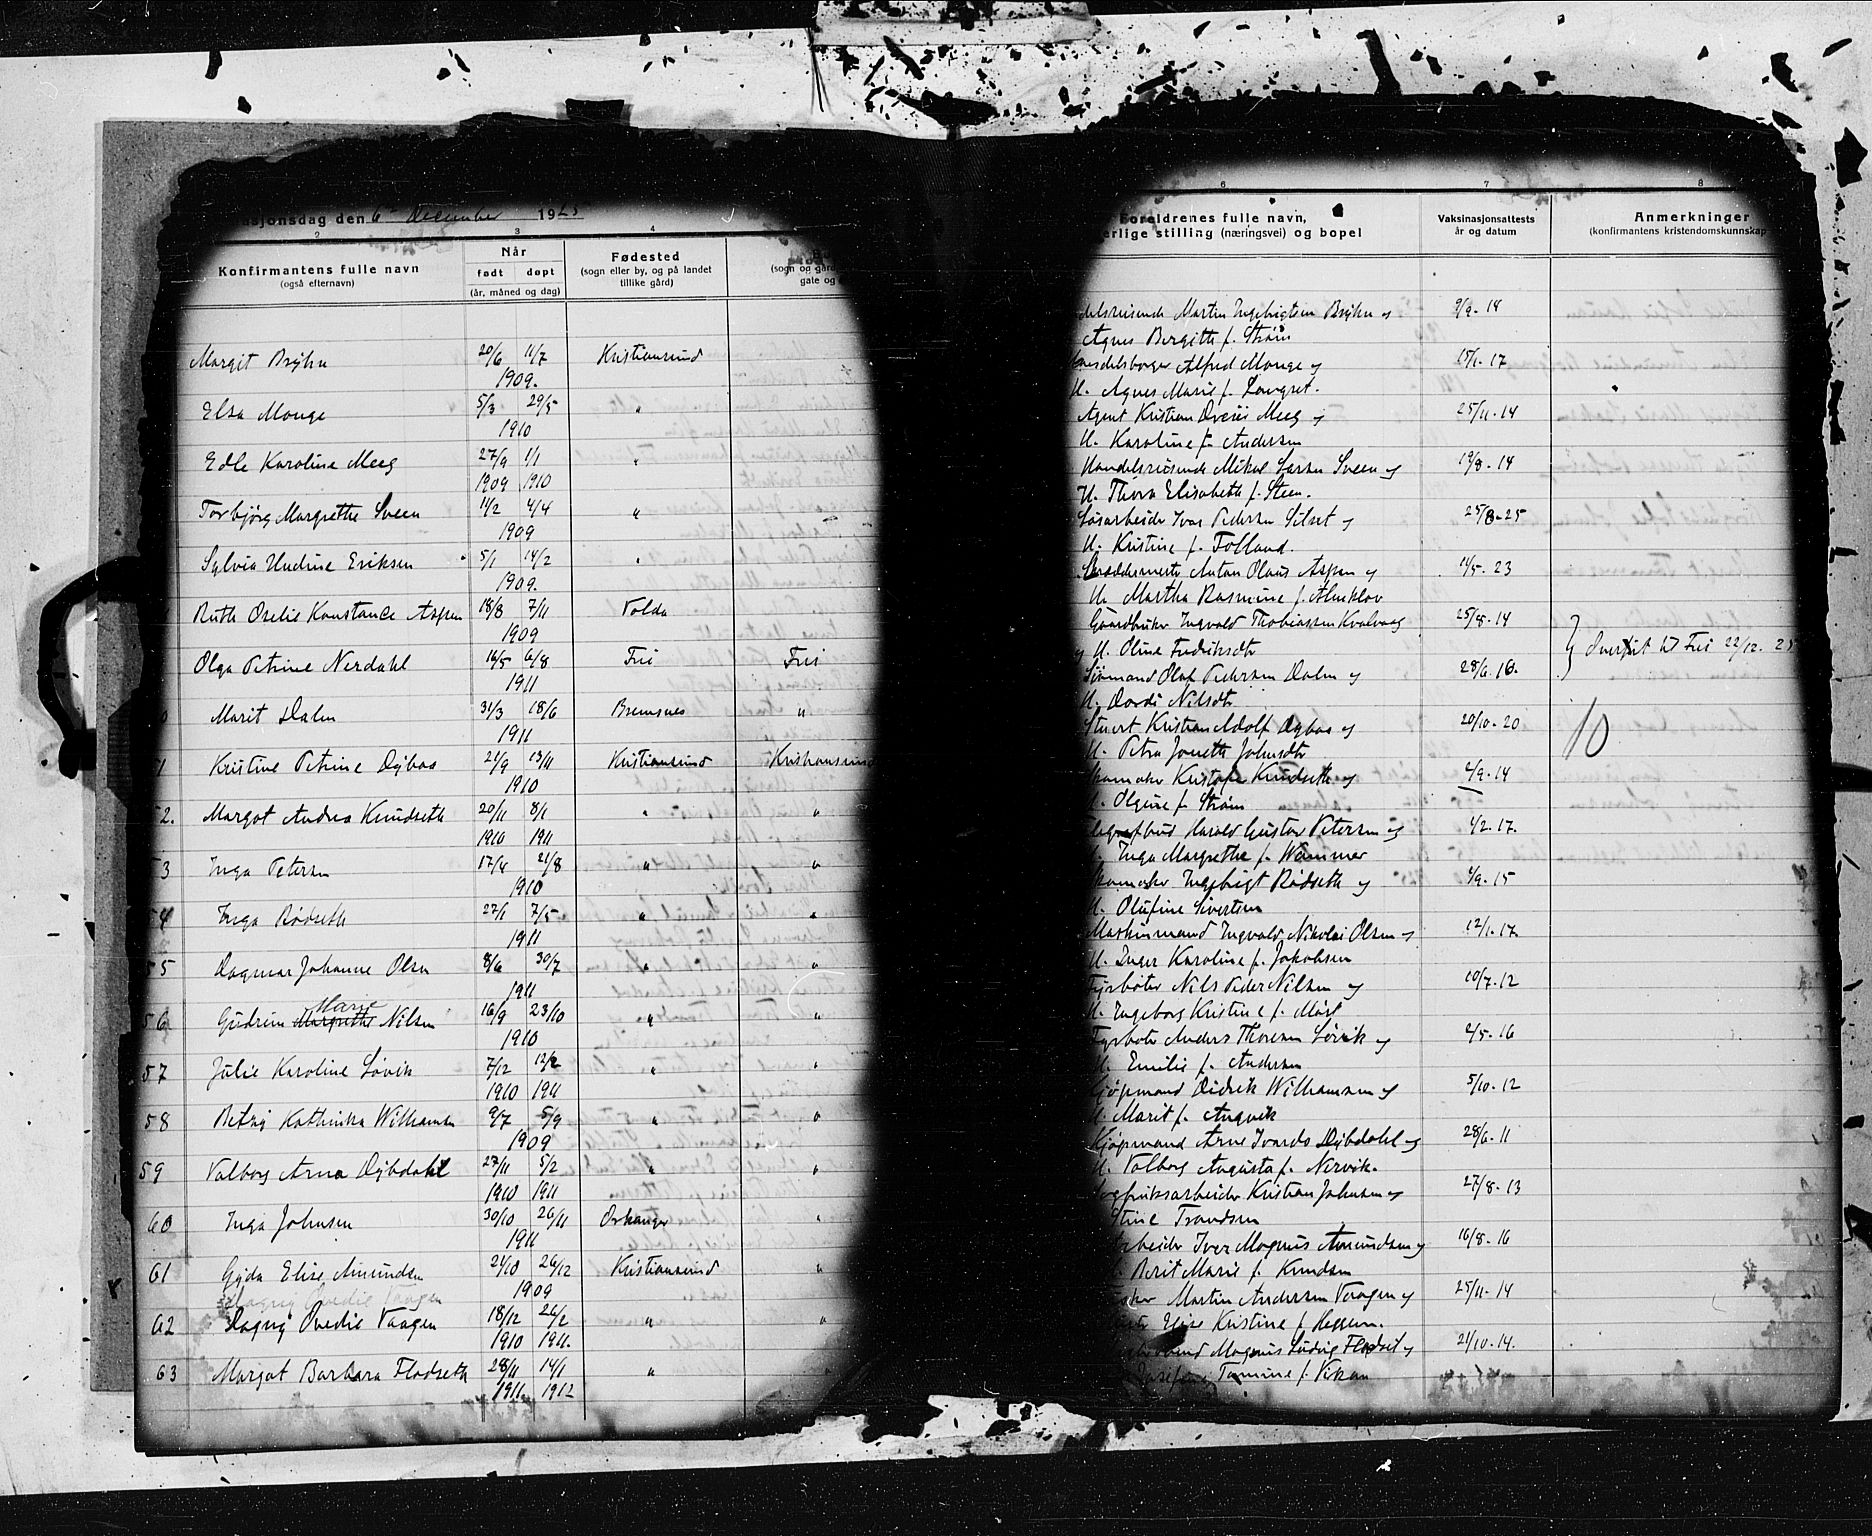 sjonsdag den 6 December 1925
2 3 4
Konfirmantens fulle navn
(også efternavn)
Når
født døpt
(år, måned og dag)
Fødested
(sogn eller by, og på landet
tillike gård)
(sogn og
gate og
Margit Bryhn 20/6 11/7 Kristiansund
1909.
Elsa Monge 5/3 29/5 "
1910
Edle Karoline Meeg 27/9 1/1 "
1909 1910
Torbjørg Margrethe Sveen 11/2 4/4 "
1909
Sylvia Undine Eriksen 5/1 14/2 "
1909.
Ruth Konstance Aspen 18/8 7/11 Volda
1909
Olga Petrine Nerdahl 16/5 6/8 Frei Frei
1911
Marit Dalen 31/3 18/6 Bremsnes "
1911
Kristine Petrine 21/9 13/11 Kristiansund Kristiansund
1910
2. Margot Andrea Knudseth 20/11 8/1 " "
1910 1911
3 Inga Petersen 17/4 21/8 " "
1910
54 Inga Rødseth 27/1 7/5 " "
1911
55 Dagmar Johanne Olsen 8/6 30/7 " "
1911
Marie
56 Gudrun Margrethe Nilsen 16/9 23/10 " "
1910
57 Julie Karoline Løvik 7/12 12/2 " "
1910 1911
58 Betsy Kathinka Wilhamsen 9/7 5/9 " "
1909
59 Valborg Arna Dybdahl 27/11 5/2 " "
1910 1911
60 Inga Johnsen 30/10 26/11 Orkanger "
1911
61 Gyda Elise Amundsen 21/10 26/12 Kristiansund "
1909
62 Dagny Ovedie Vaagen 18/12 26/2 " "
1910 1911.
63 Margot Barbara Flodseth 28/11 14/1 "
1911 1912
6 7 8
Foreldrenes fulle navn,
erlige stilling (næringsvei) og bopel
Vaksinasjonsattests
år og datum
Anmerkninger
(konfirmantens kristendomskunnskap
delsreisende Martin Ingebrigtsen Bryhn og 9/9-14
Agnes Bergitte f. Strøm
Handelsborger Alfred Monge og 15/1-17
H. Agnes Marie f. Langset.
Agent Kristian Meeg og 25/11-14
H. Karoline f. Andersen
Handelsreisende Mikal Larsen Sveen og 19/8-14
H. Thora Elisabeth f. Steen.
Løsarbeider Ivar Pedersen Silset og 25/8-25
H. Kristine f. Folland.
Skreddermester Anton Olaus Aspen og 11/5-23
H. Martha Rasmine f. Almklov
Gaardbruker Ingvald Thobiassen Kvalvaag 25/8-14
og H. Oline Fredriksdtr
Sjømand Olaf Pedersen Dalen og 28/6.16.
H. Dordi Nilsdtr
Overført til Frei 22/12. 25
Stuert Kristian Adolf og 20/10-20 10
H. Petra Jonette Johnsdtr
Skomaker Kristofer Knudseth og 4/9-14
H. Olgine f. Strøm
Telegrafbud Harald Gustav Petersen og 4/2-17.
H. Inga Margrethe f. Wammer
Skomaker Ingebrigt Rødseth og 4/9-15
H. Olufine Sivertsen
Maskinmand Ingvald Nikolai Olsen og 12/1-17
H. Inger Karoline f. Jakobsen
Fyrbøter Nils Peder Nilsen og 10/7-12
H. Ingeborg Kristine f.
Fyrbøter Anders Thoresen Løvik og 2/5-16
H. Emilie f. Andersen
Kjøpmand Didrik Wilhamsen og 5/10-12
H. Marit f. Angvik
Kjøpmand Arne Ivardo Dybdahl og 28/6-11
H. Valborg Augusta f. Nervik.
fabriksarbeider Kristian Johnsen og 27/8-13
Stine Trondsen
Arbeider Iver Magnus Amundsen og 16/8-16
H. Berit Marie f. Knudsen
Martin Andersen Vaagen og 25/11-14
Elise Kristine f. Heggem.
Magnus Ludvig Flodset og 21/10-14.
Tomine f. Vikan